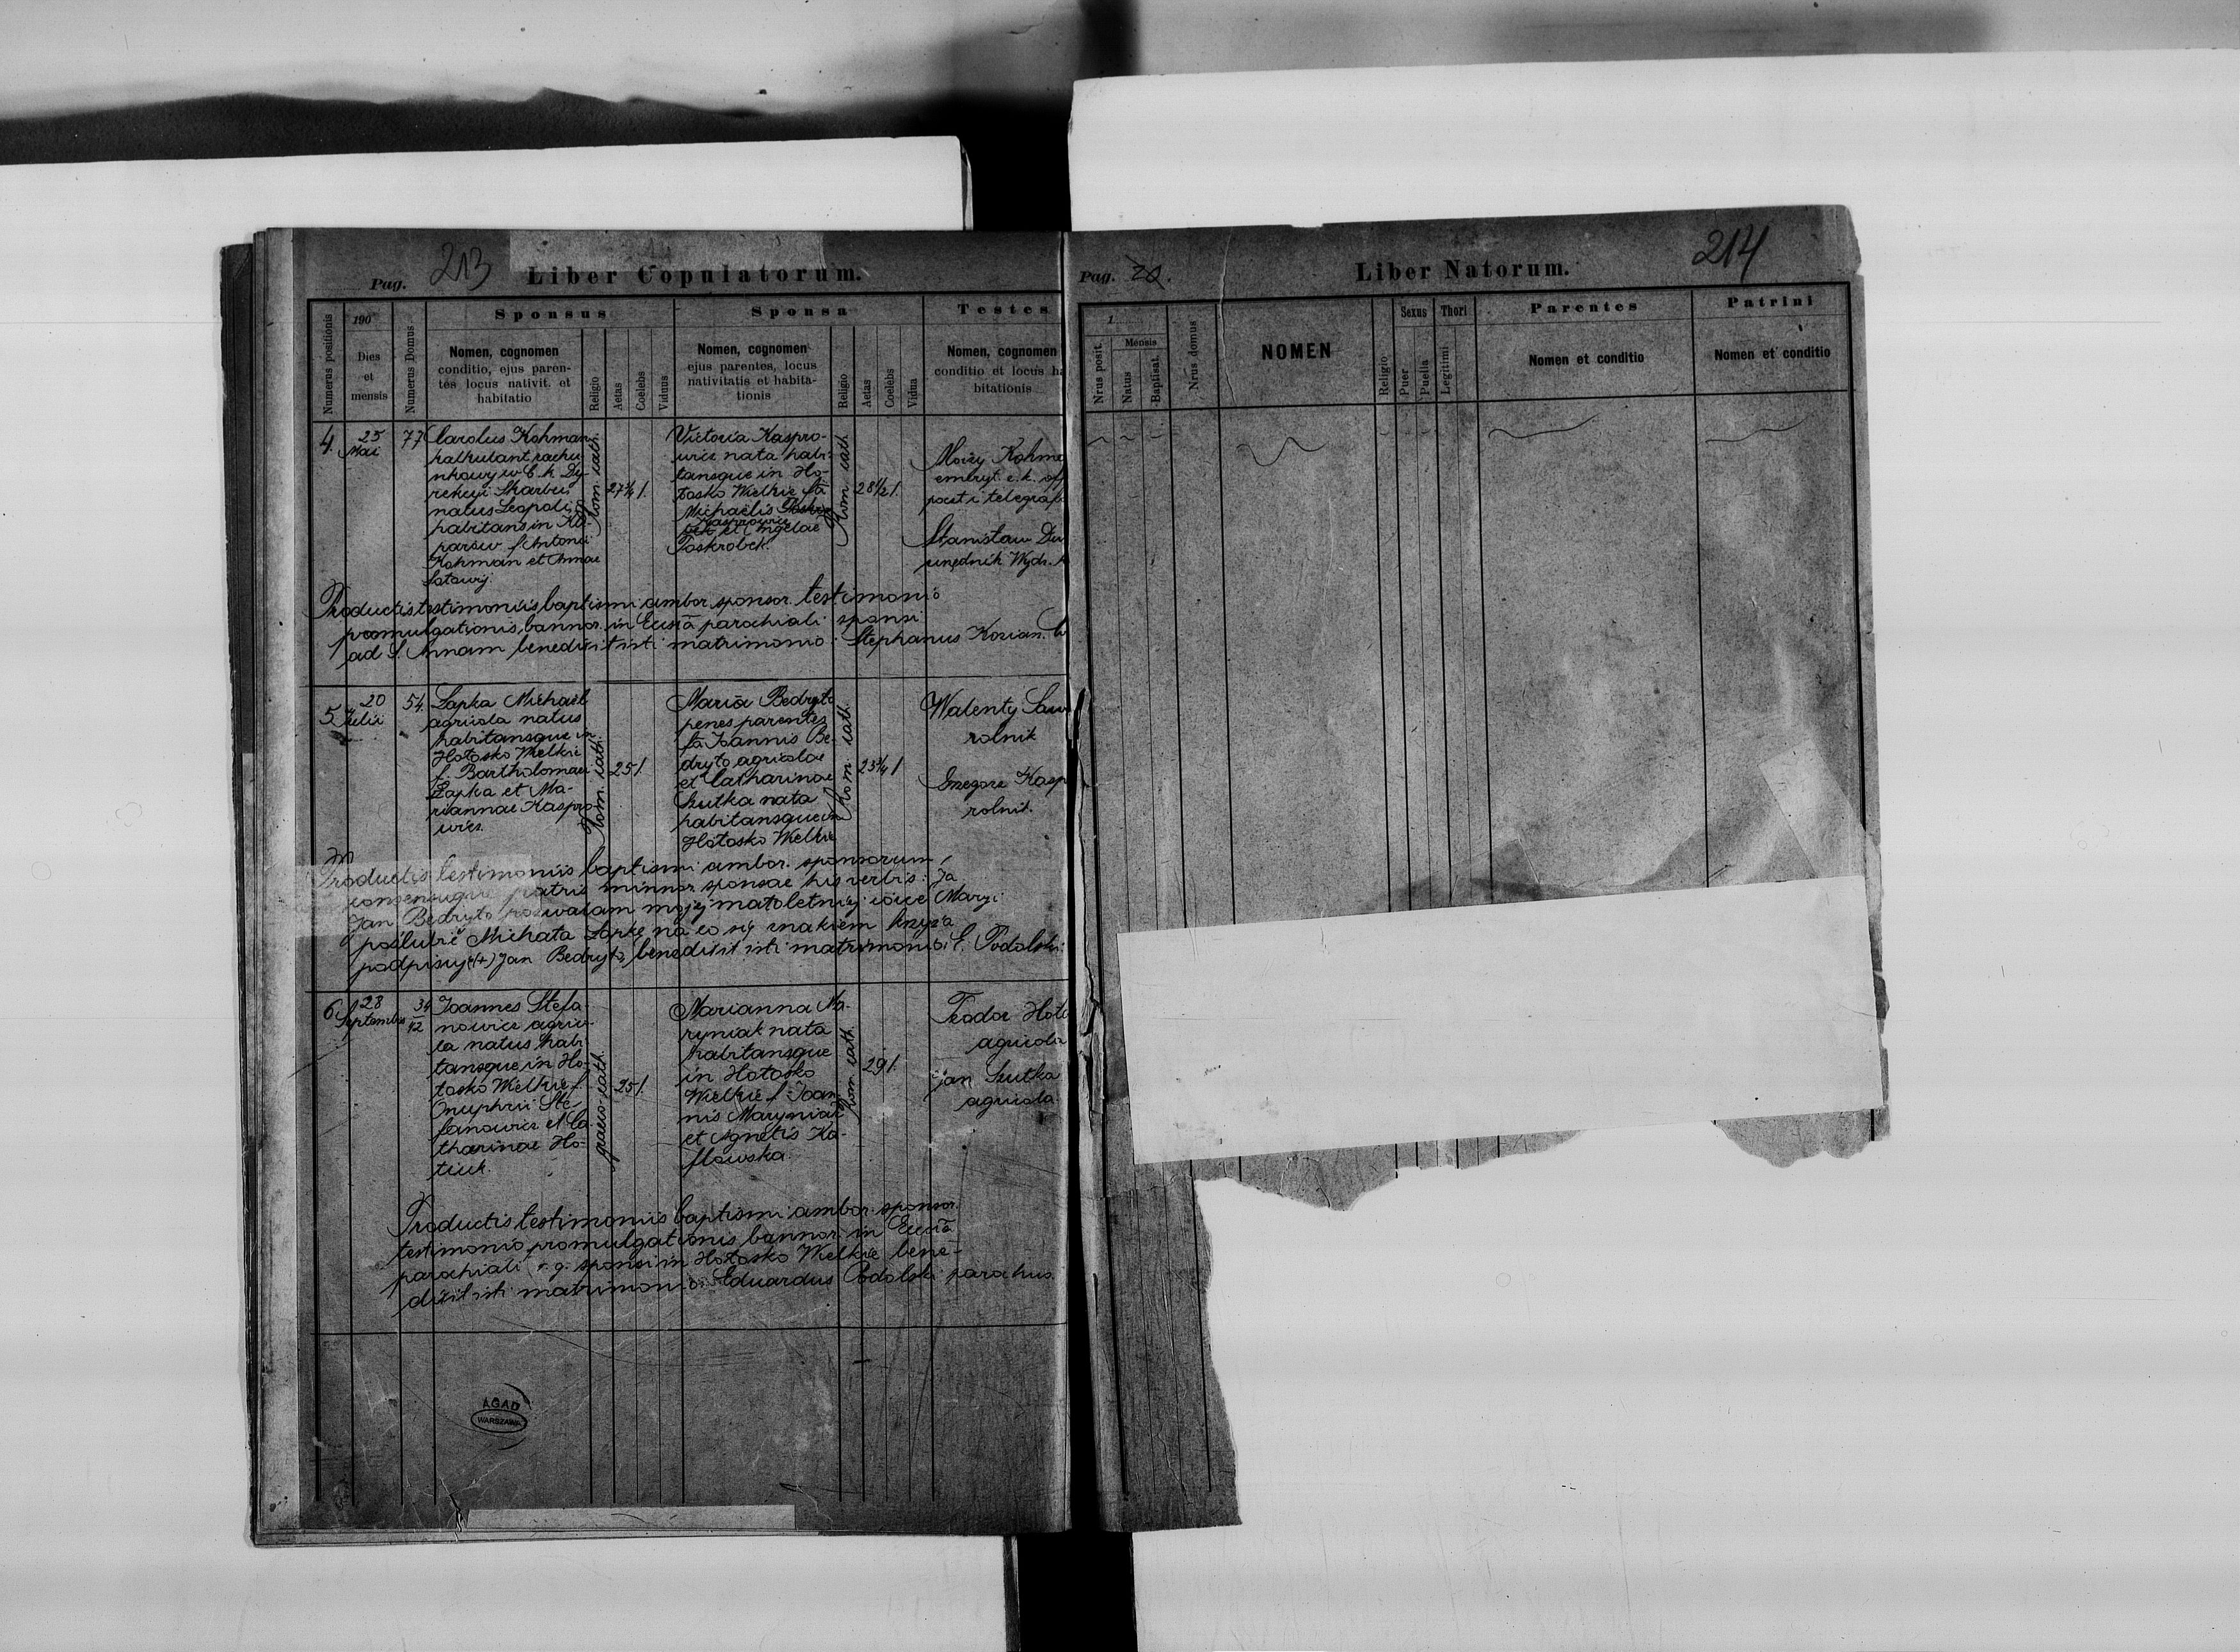 Pag. 213 Liber Copulatorum.
Numerus positionis
190
Dies et mensis
Numerus Domus
Sponsus
Nomen, cognomen
conditio, ejus paren-
tes locus nativit. et
habitatio
Religio
Aetas
Coelebs
Viduus
Sponsa
Nomen, cognomen
ejus parentes, locus
nativitatis et habita-
tionis
Religio
Aetas
Coelebs
Vidua
Testes
Nomen, cognomen
conditio et locus ha
bitationis
4.
25
Mai
77
Carolus Kohman
kalkulant rachu-
nkowy w C. k. Dy-
rekcyi Skarbu
natus Leopoli
habitans in
f. Antonii
Kohman et Annae
Rom. cath.
27 3/4 1.
Victoria Kaspro-
wicz nata habi-
tansque in Ho-
łosko Wielkie fa
Michaelis
Kasprowicz
et Angelae
Poskrobek.
Rom. cath.
28 1/2 1.
Alojzy Kohma
emeryt. c. k. of
poczt i telegraf
Stanisław Du
urzędnik Wydz.
Productis testimoniis baptismi ambor. sponsor. testimonio
promulgationis bannor. in Eccsiā parochiali sponsi
ad S. Annam benedixit isti matrimonio: Stephanus
5.
20
Julii
54.
Łapka Michaël
agricola natus
habitansque in
Hołosko Wielkie
f. Bartholomaei
Łapka et Ma-
riannae Kaspro-
wicz.
Rom. cath.
25 1.
Maria Bedryło
penes parentes
fa Joannis Be-
dryło agricolae
et Catharinae
Szutka nata
habitansque in
Hołosko Wielkie
Rom. cath.
23 3/4 1
Walenty
rolnik
Grzegorz Kasp
rolnik.
Productis testimoniis baptismi ambor. sponsorum,
consensuque patris minnor. sponsae his verbis: Ja
Jan Bedryło pozwalam mojej małoletniej córce Maryi
poślubić Michała Łapkę na co się znakiem krzyża
podpisuję (+) Jan Bedryło, benedixit isti matrimonio: E. Podolski
6.
28
Septembris
34
42
Joannes Stefa-
nowicz agrico-
la natus habi-
tansque in Ho-
łosko Wielkie f.
Onuphrii Ste-
fanowicz et Ca-
tharinae Ho-
tiuk.
graeco-cath.
25 1.
Marianna Ma-
ryniak nata
habitansque
in Hołosko
Wielkie f. Joan-
nis Maryniak
et Agnetis Ko-
złowska.
Rom. cath.
29 1.
Teodor Hoło
agricola
Jan Szutka
agricola
Productis testimoniis baptismi ambor. sponsor.
testimonio promulgationis bannor. in Eccsiā
parochiali r. g. sponsi in Hołosko Wielkie bene-
dixit isti matrimonio: Eduardus Podolski parochus.
AGAD
WARSZAWA
Pag. 20. Liber Natorum. 214
1
Nrus posit.
Mensis
Natus
Baptisat.
Nrus domus
NOMEN
Religio
Sexus
Puer
Puella
Thori
Legitimi
Parentes
Nomen et conditio
Patrini
Nomen et conditio